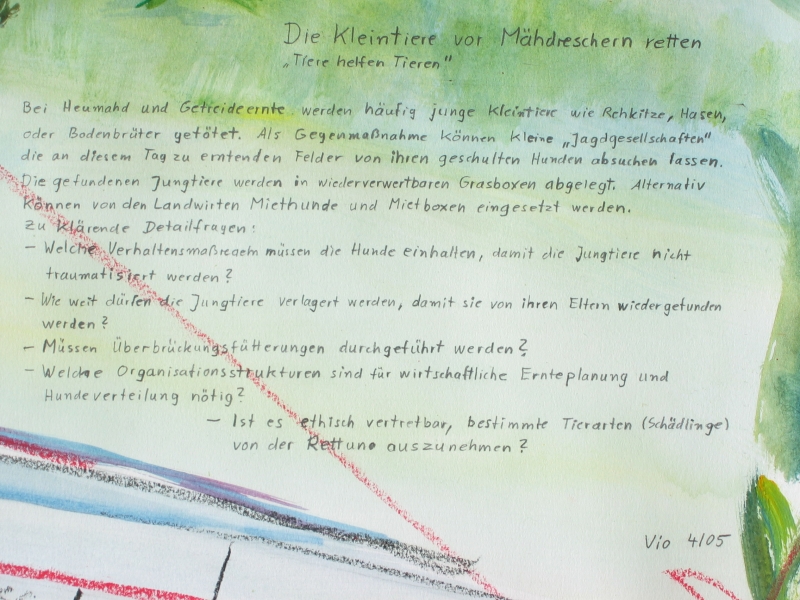 Die Kleintiere vor Mähdreschern retten
„Tiere helfen Tieren"
Bei Heumahd und Getreideernte werden häufig junge Kleintiere wie Rehkitze, Hasen,
oder Bodenbrüter getötet. Als Gegenmaßnahme können kleine „Jagdgesellschaften"
die an diesem Tag zu erntenden Felder von ihren geschulten Hunden absuchen lassen.
Die gefundenen Jungtiere werden in wiederverwertbaren Grasboxen abgelegt. Alternativ
können von den Landwirten Miethunde und Mietboxen eingesetzt werden.
Zu Klärende Detailfragen:
- Welche Verhaltensmaßregeln müssen die Hunde einhalten, damit die Jungtiere nicht
traumatisiert werden?
- Wie weit dürfen die Jungtiere verlagert werden, damit sie von ihren Eltern wiedergefunden
werden?
- Müssen Überbrückungsfütterungen durchgeführt werden?
- Welche Organisationsstrukturen sind für wirtschaftliche Ernteplanung und
Hundeverteilung nötig?
- Ist es ethisch vertretbar, bestimmte Tierarten (Schädlinge)
von der Rettung auszunehmen?
Vio 4/05